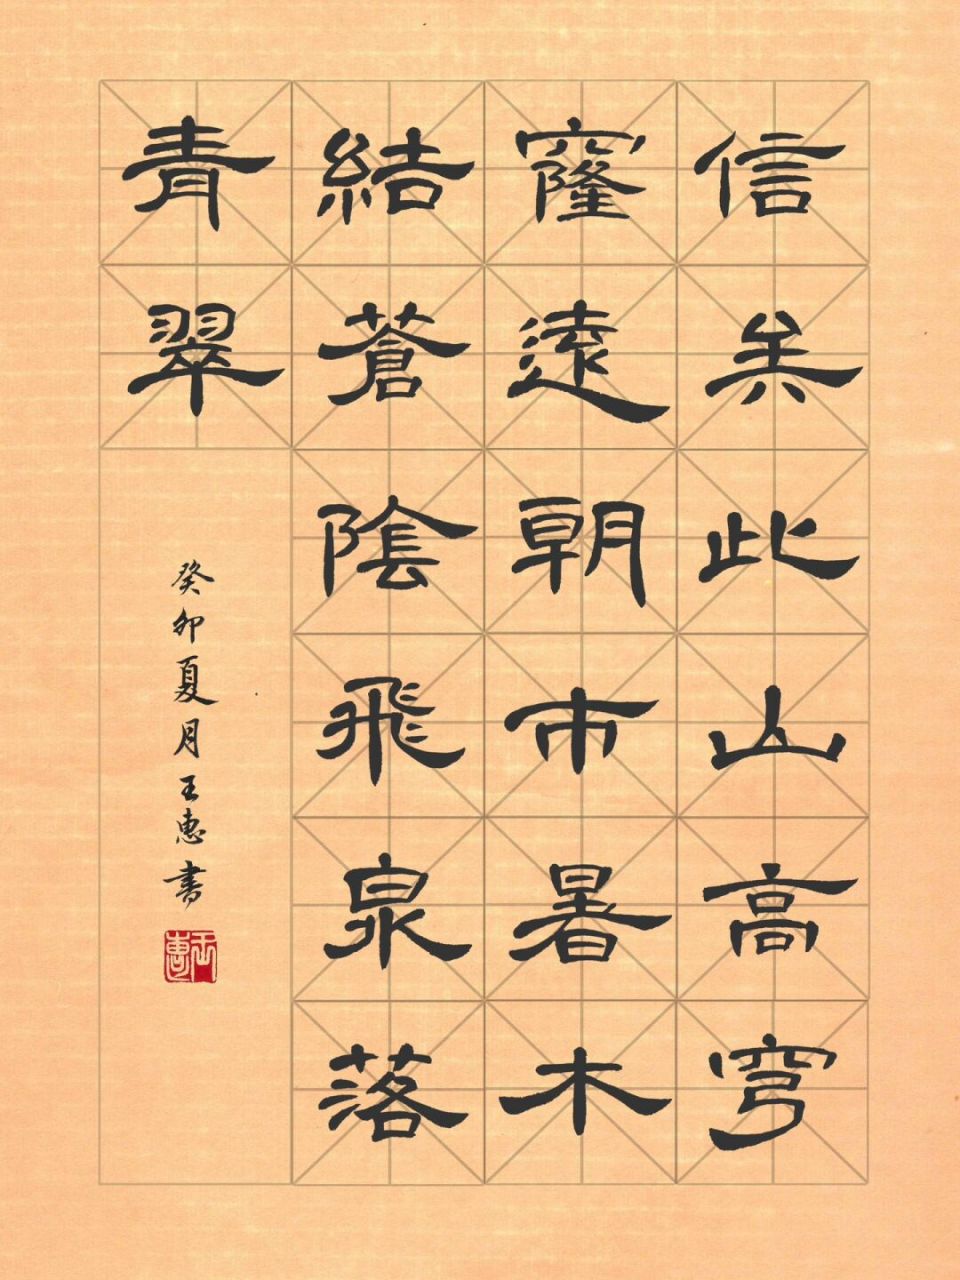 信矣此山高穹
窿遠朝市暑木
結蒼陰飛泉落
青翠
癸卯夏月王惠書